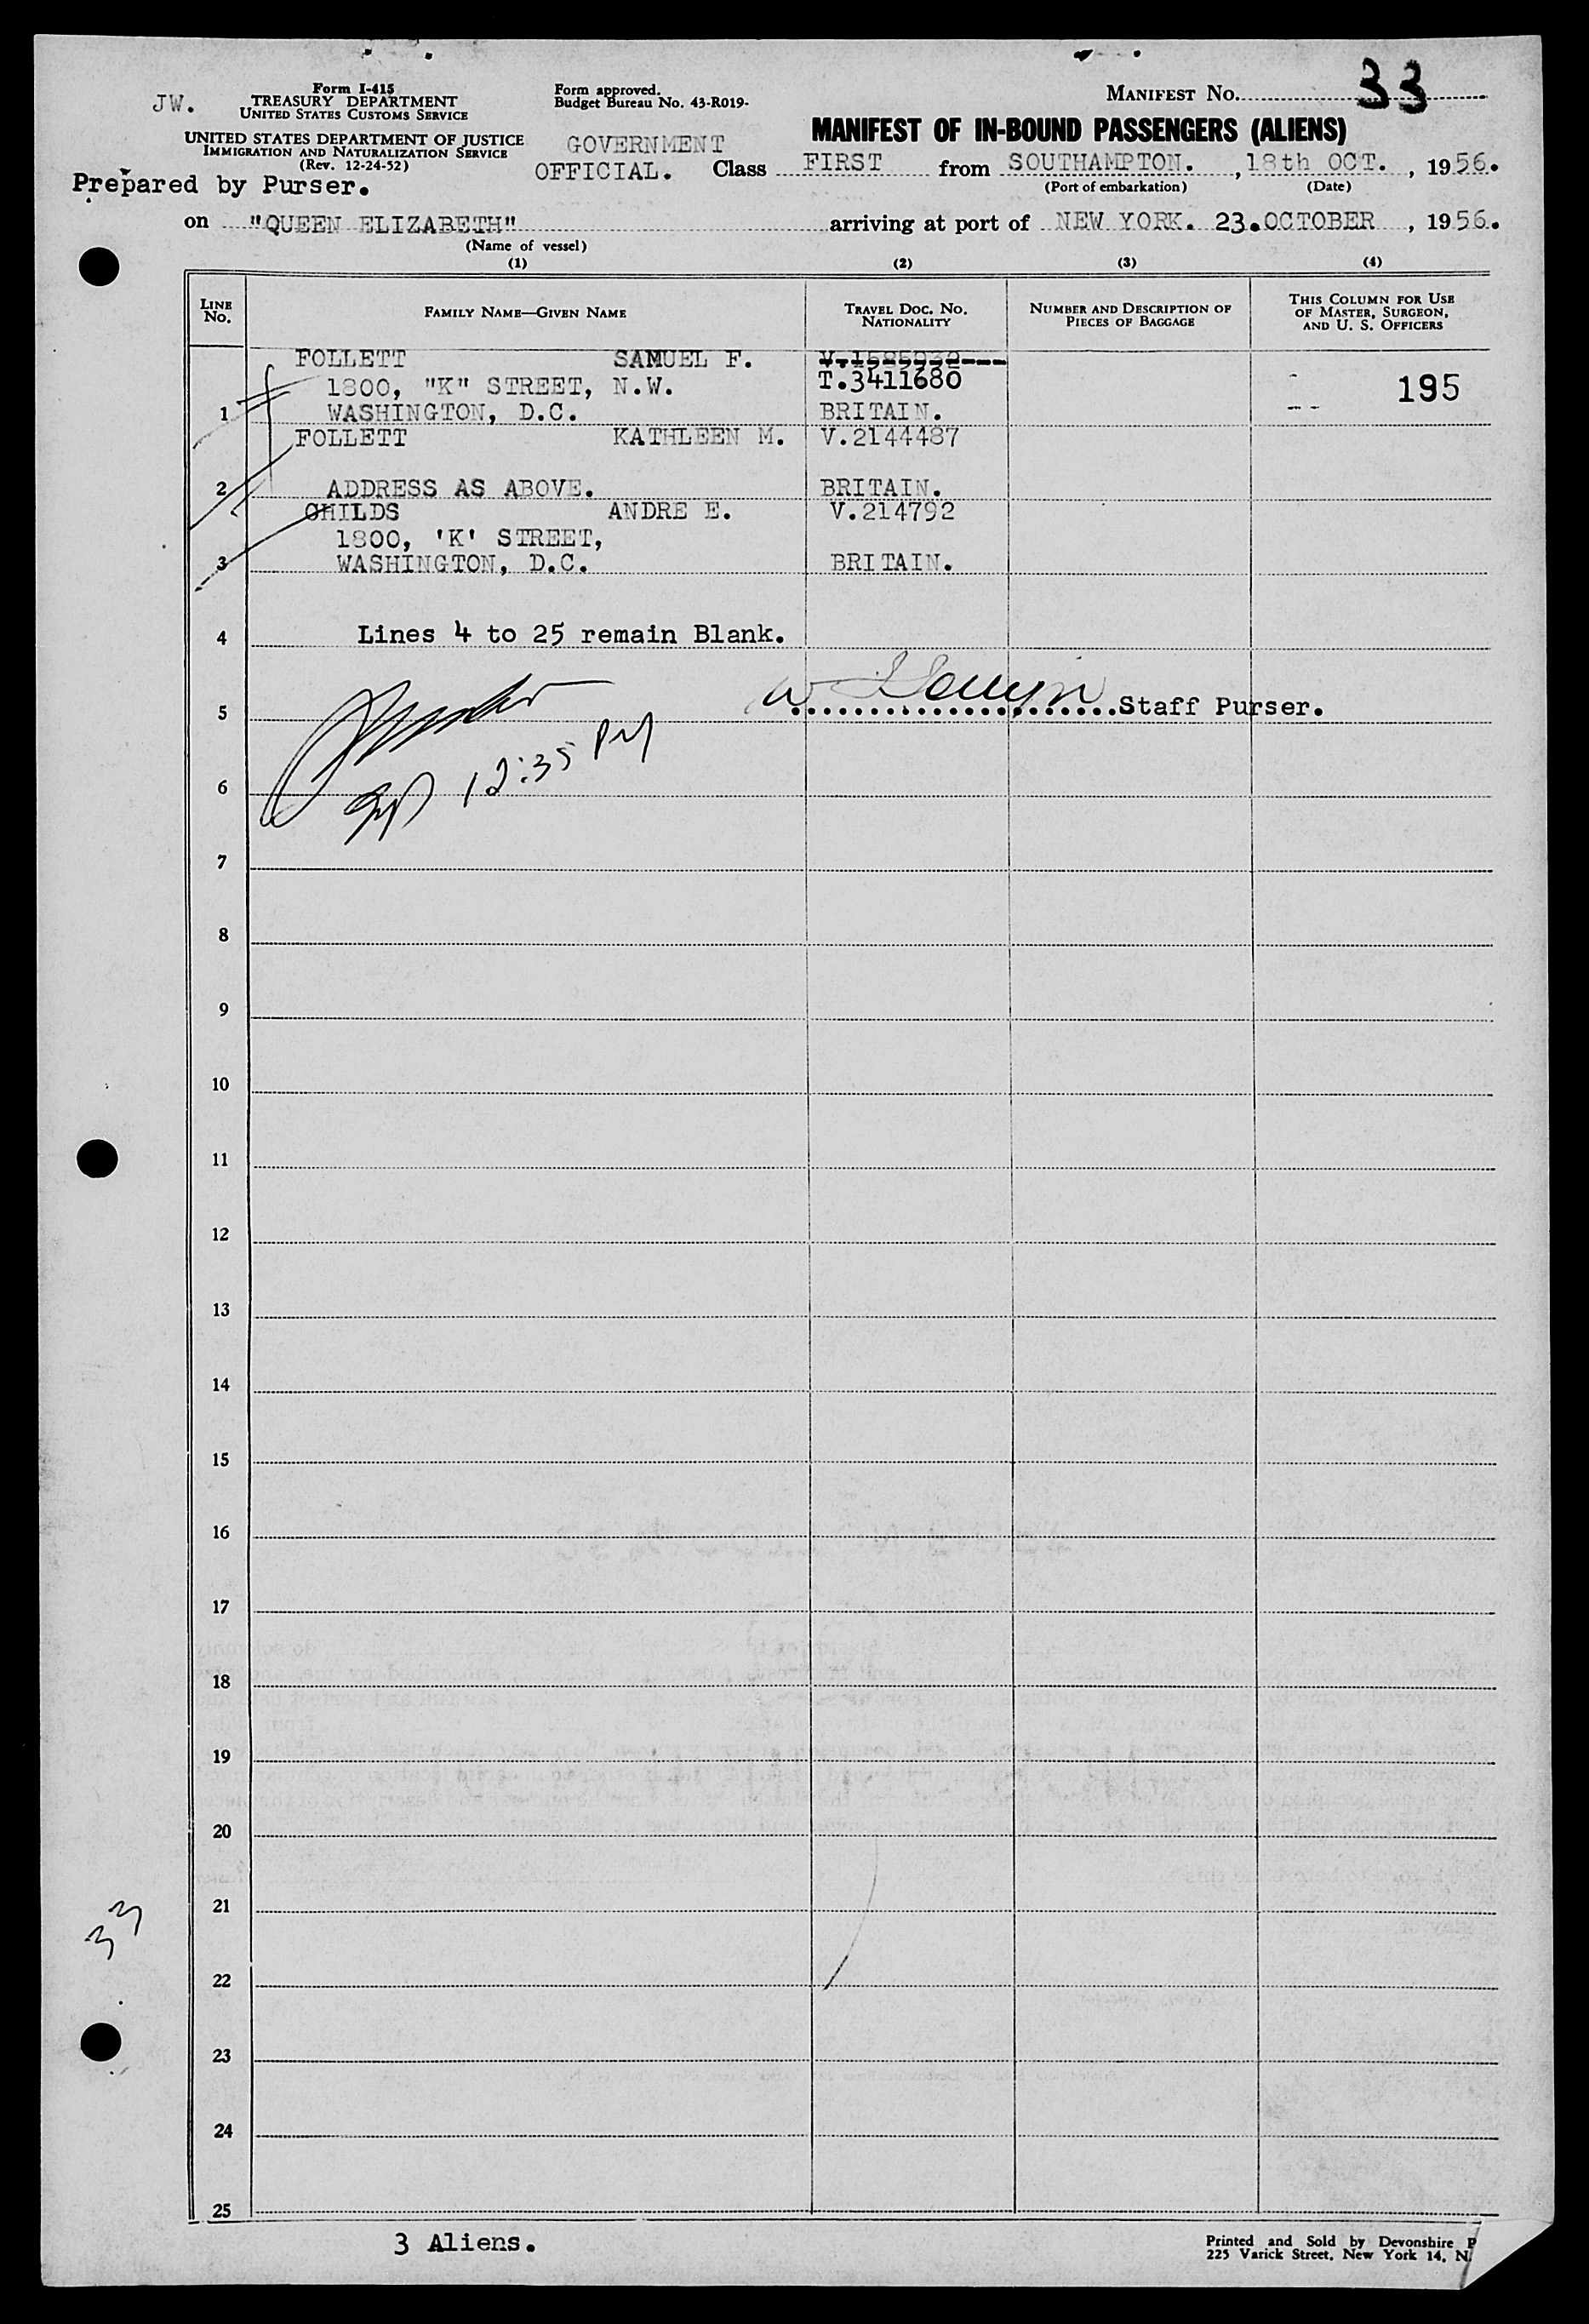 JW.
Form I-415
TREASURY DEPARTMENT
UNITED STATES CUSTOMS SERVICE
UNITED STATES DEPARTMENT OF JUSTICE
IMMIGRATION AND NATURALIZATION SERVICE
(Rev. 12-24-52)
Prepared by Purser.
Form approved.
Budget Bureau No. 43-R019-
MANIFEST No. 33
MANIFEST OF IN-BOUND PASSENGERS (ALIENS)
GOVERNMENT
OFFICIAL. Class FIRST from SOUTHAMPTON. , 18th OCT. , 1956.
(Port of embarkation) (Date)
on "QUEEN ELIZABETH" arriving at port of NEW YORK. 23.OCTOBER , 1956.
(Name of vessel)
(1) (2) (3) (4)
LINE No. FAMILY NAME—GIVEN NAME TRAVEL DOC. No. NATIONALITY NUMBER AND DESCRIPTION OF PIECES OF BAGGAGE THIS COLUMN FOR USE OF MASTER, SURGEON, AND U. S. OFFICERS
FOLLETT SAMUEL F.
1800, "K" STREET, N.W. T.3411680 195
1 WASHINGTON, D.C. BRITAIN.
FOLLETT KATHLEEN M. V.2144487
2 ADDRESS AS ABOVE. BRITAIN.
CHILDS ANDRE E. V.214792
1800, 'K' STREET,
3 WASHINGTON, D.C. BRITAIN.
4 Lines 4 to 25 remain Blank.
5 Staff Purser.
12:35 PM
6
7
8
9
10
11
12
13
14
15
16
17
18
19
20
21
33
22
23
24
25
3 Aliens.
Printed and Sold by Devonshire P
225 Varick Street, New York 14, N.